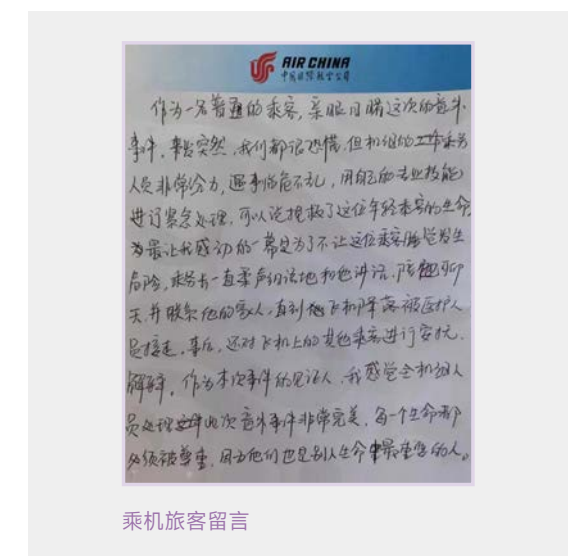 AIR CHINA
中国国际航空公司
作为一名普通的乘客，亲眼目睹这次的意外
事件，事发突然，我们都很恐慌，但机组的工作乘务
人员非常给力，遇事临危不乱，用自己的专业技能
进行紧急处理，可以说挽救了这位年轻乘客的生命
为最让我感动的一幕是为了不让这位乘客睡觉发生
危险，乘务长一直柔声细语地和他讲话，陪他聊
天，并联系他的家人，直到他飞机降落被医护人
员接走，事后，还对飞机上的其他乘客进行安抚，
解释，作为本次事件的见证人，我感觉全机组人
员处理这件此次意外事件非常完美，每一个生命都
必须被尊重，因为他们也是别人生命中最重要的人。
乘机旅客留言